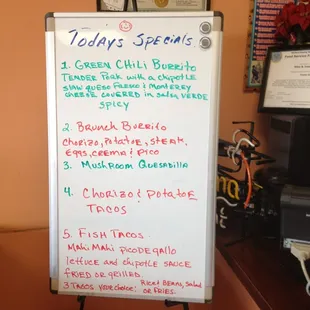 Todays Specials
1. Green Chili Burrito
Tender Pork with a chipotle
slaw queso fresco & Monterey
cheese covered in salsa verde
spicy
2. Brunch Burrito
Chorizo, Potatoe, Steak,
Eggs, crema & pico
3. Mushroom Quesadilla
4. Chorizo & Potatoe
Tacos
5. Fish Tacos
Mahi Mahi pico de gallo
lettuce and chipotle sauce
fried or grilled.
3 Tacos your choice: Rice & Beans, Salad
or Fries.